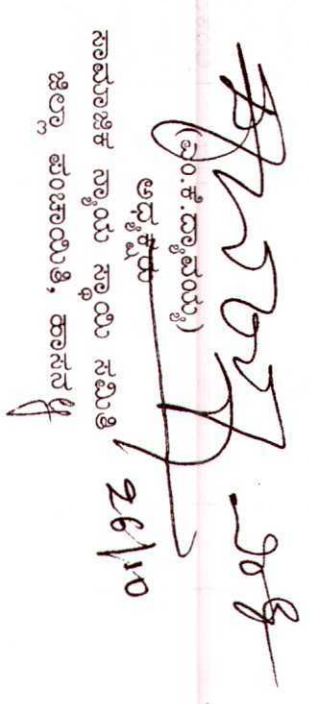 (ಎಂ.ಕೆ.ದ್ಯಾವಯ್ಯ)
ಅಧ್ಯಕ್ಷರು
ಸಾಮಾಜಿಕ ನ್ಯಾಯ ಸ್ಥಾಯಿ ಸಮಿತಿ
ಜಿಲ್ಲಾ ಪಂಚಾಯಿತಿ, ಹಾಸನ
26/10